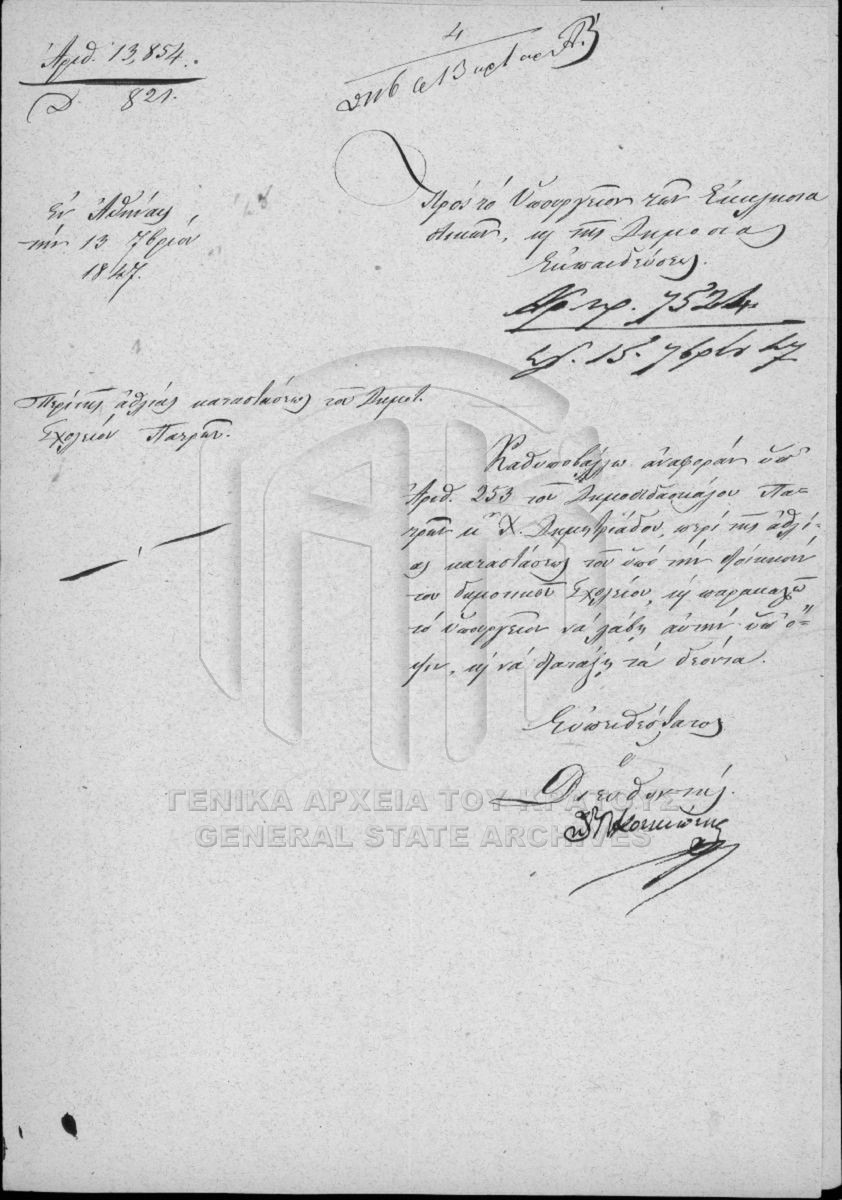 Ἀριθ. 13,854.
Δ. 821.
4
Ἐν Ἀθήναις
τὴν 13 7βρίου
1847.
Πρὸς τὸ Ὑπουργεῖον τῶν Ἐκκλησια
στικῶν, κ̀ τῆς Δημοσίας
Ἐκπαιδεύσεως.
Ἀρ. πρ. 7524
15 7βρίου 47
Περὶ τῆς ἀθλίας καταστάσεως τοῦ Δημοτ.
Σχολείου Πατρῶν.
Καθυποβάλλω ἀναφορὰν ὑπ'
Ἀριθ. 253 τοῦ Δημοδιδασκάλου Πα-
τρῶν κ. Χ. Δημητριάδου, περὶ τῆς ἀθλί-
ας καταστάσεως τοῦ ὑπὸ τὴν
του δημοτικοῦ Σχολείου, κ̀ παρακαλῶ
τὸ Ὑπουργεῖον νὰ λάβῃ αὐτὴν ὑπ' ὄ-
ψιν, κ̀ νὰ διατάξῃ τὰ δέοντα.
Εὐπειθέστατος
ὁ
Διευθυντής.
ΓΕΝΙΚΑ ΑΡΧΕΙΑ ΤΟΥ ΚΡΑΤΟΥΣ
GENERAL STATE ARCHIVES